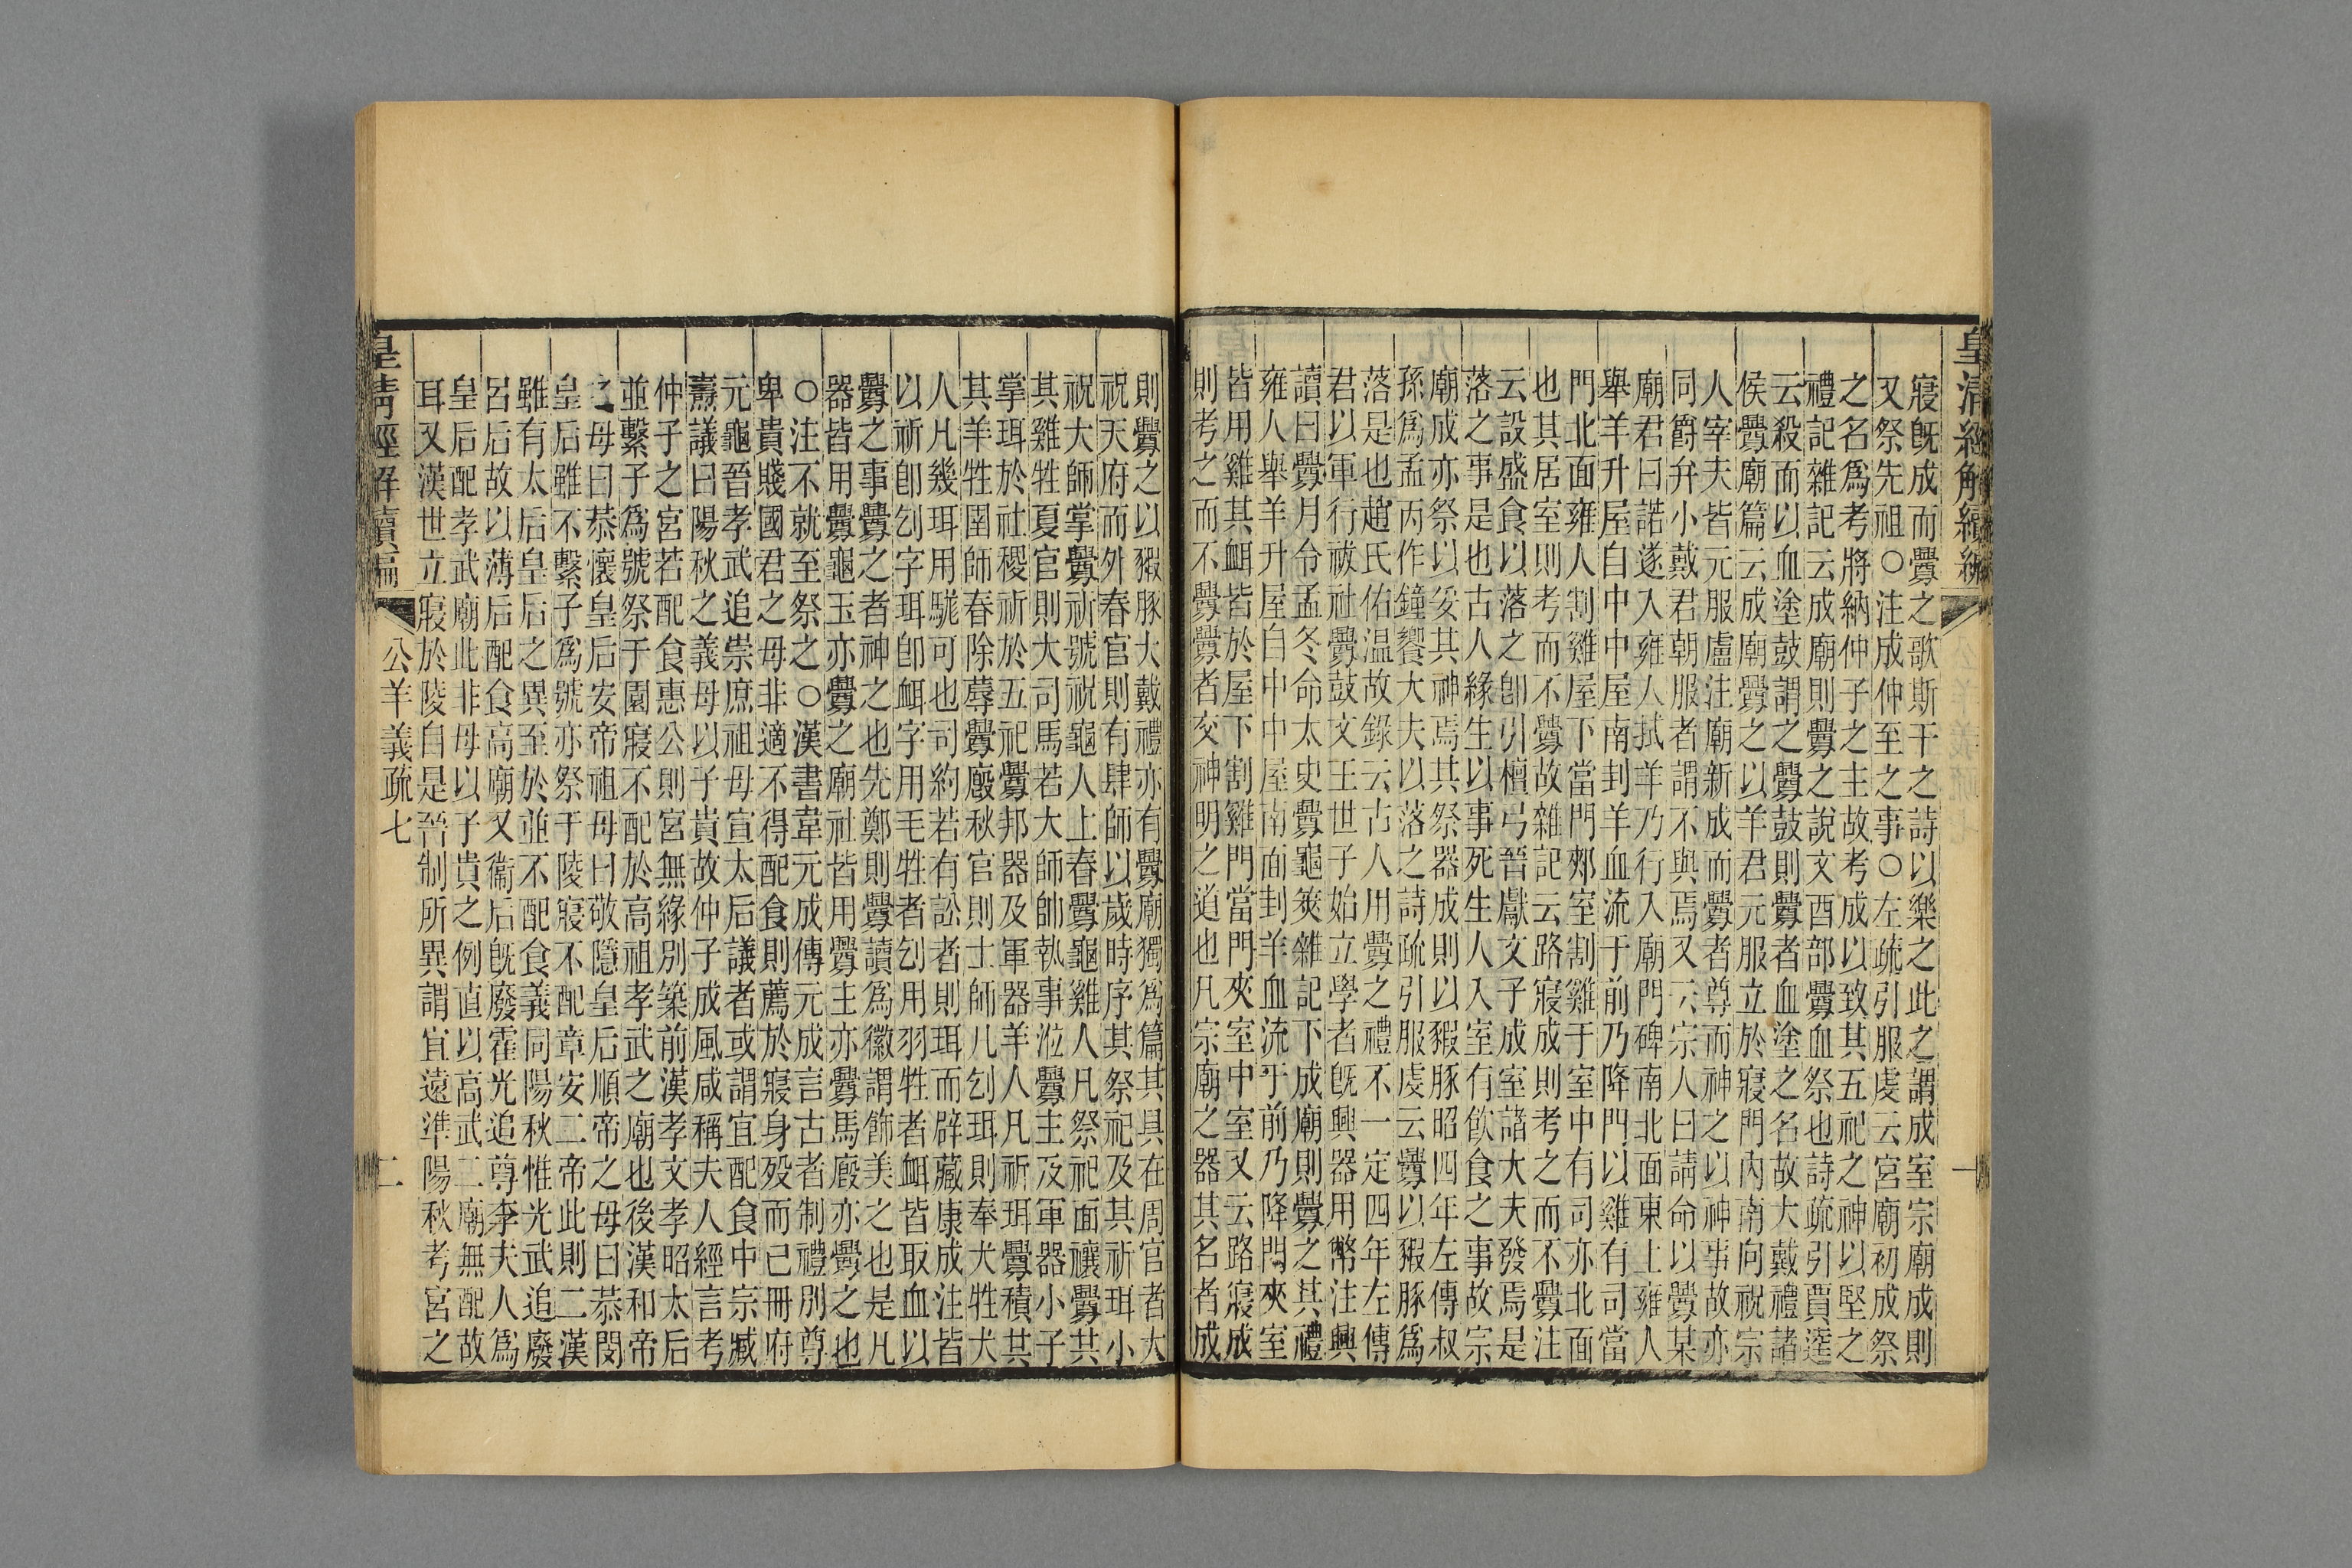 皇清經解續編
一
寢旣成而釁之歌斯干之詩以樂之此之謂成室宗廟成則
又祭先祖○注成仲至之事○左疏引服虔云宮廟初成祭
之名爲考將納仲子之主故考成以致其五祀之神以堅之
禮記雜記云成廟則釁之說文酉部釁血祭也詩疏引賈逵
云殺而以血塗鼓謂之釁鼓則釁者血塗之名故大戴禮諸
侯釁廟篇云成廟釁之以羊君元服立於寢門內南向祝宗
人宰夫皆元服盧注廟新成而釁者尊而神之以神事故亦
同爵弁小戴君朝服者謂不與焉又云宗人曰請命以釁某
廟君曰諾遂入雍人拭羊乃行入廟門碑南北面東上雍人
舉羊升屋自中中屋南刲羊血流于前乃降門以雞有司當
門北面雍人割雞屋下當門郟室割雞于室中有司亦北面
也其居室則考而不釁故雜記云路寢成則考之而不釁注
云設盛食以落之卽引檀弓晉獻文子成室諸大夫發焉是
落之事是也古人緣生以事死生人入室有飮食之事故宗
廟成亦祭以妥其神焉其祭器成則以豭豚昭四年左傳叔
孫爲孟丙作鐘饗大夫以落之詩疏引服虔云釁以豭豚爲
落是也趙氏佑温故錄云古人用釁之禮不一定四年左傳
君以軍行祓社釁鼓文王世子始立學者旣興器用幣注興
讀曰釁月令孟冬命太史釁龜筴雜記下成廟則釁之其禮
雍人舉羊升屋自中中屋南面刲羊血流于前乃降門夾室
皆用雞其衈皆於屋下割雞門當門夾室中室又云路寢成
則考之而不釁釁者交神明之道也凡宗廟之器其名者成
則釁之以豭豚大戴禮亦有釁廟獨爲篇其具在周官者大
祝天府而外春官則有肆師以歲時序其祭祀及其祈珥小
祝大師掌釁祈號祝龜人上春釁龜雞人凡祭祀面禳釁其
其雞牲夏官則大司馬若大師帥執事涖釁主及軍器小子
掌珥於社稷祈於五祀釁邦器及軍器羊人凡祈珥釁積其
其羊牲圉師春除蓐釁廏秋官則士師凡刉珥則奉犬牲犬
人凡幾珥用駹可也司約若有訟者則珥而辟藏康成注皆
以祈卽刉字珥卽衈字用毛牲者刉用羽牲者衈皆取血以
釁之事釁之者神之也先鄭則釁讀爲徽謂飾美之也是凡
器皆用釁龜玉亦釁之廟社皆用釁主亦釁馬廏亦釁之也
○注不就至祭之○漢書韋元成傳元成言古者制禮別尊
卑貴賤國君之母非適不得配食則薦於寢身歿而已冊府
元龜晉孝武追崇庶祖母宣太后議者或謂宜配食中宗臧
燾議曰陽秋之義母以子貴故仲子成風咸稱夫人經言考
仲子之宮若配食惠公則宮無緣別築前漢孝文孝昭太后
並繫子爲號祭于園寢不配於高祖孝武之廟也後漢和帝
之母曰恭懷皇后安帝祖母曰敬隱皇后順帝之母曰恭閔
皇后雖不繫子爲號亦祭于陵寢不配章安二帝此則二漢
雖有太后皇后之異至於並不配食義同陽秋惟光武追廢
呂后故以薄后配食高廟又衞后旣廢霍光追尊李夫人爲
皇后配孝武廟此非母以子貴之例直以高武二廟無配故
耳又漢世立寢於陵自是晉制所異謂宜遠準陽秋考宮之
皇清經解續編
公羊義疏七
二